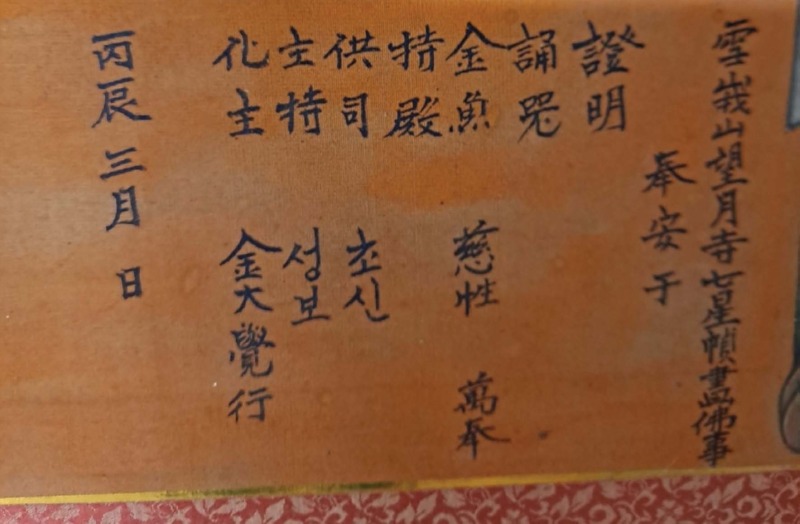 雪峩山望月寺七星幀畫佛事
奉安于
證明
誦咒
金魚 慈性 萬奉
特殿
供司 초신
主特 성보
化主 金大覺行
丙辰 三月 日